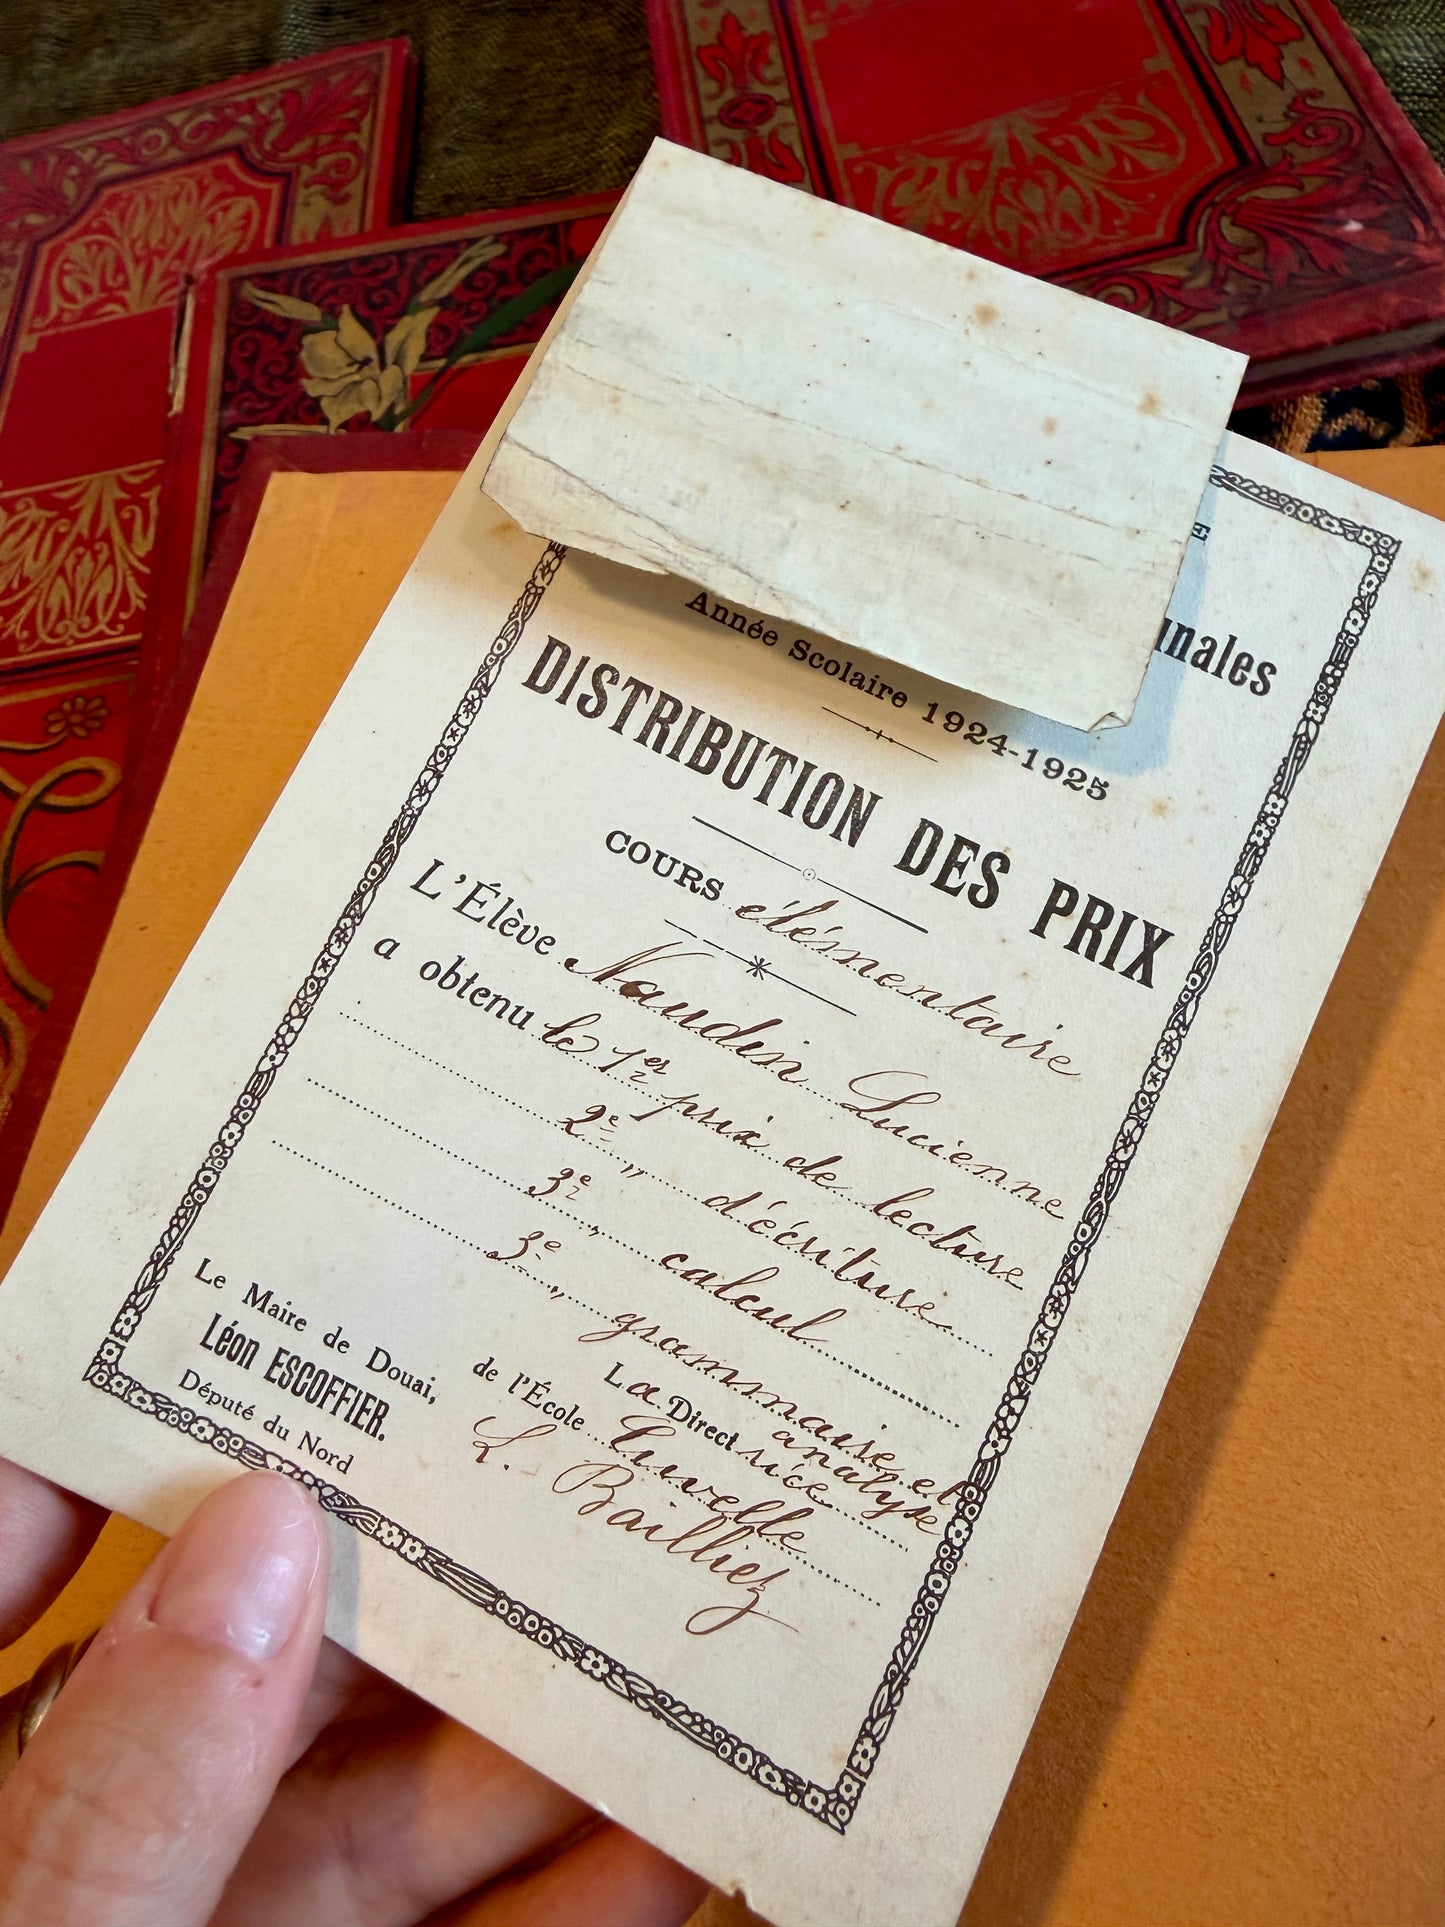 E
unales
Année Scolaire 1924-1925
DISTRIBUTION DES PRIX
COURS élémentaire
L'Élève Naudin Lucienne
a obtenu le 1er prix de lecture
2e " d'écriture
3e " calcul
3e " grammaire et
analyse
Le Maire de Douai,
Léon ESCOFFIER.
Député du Nord
La Directrice
de l'École Cuvelle
L. Bailliez